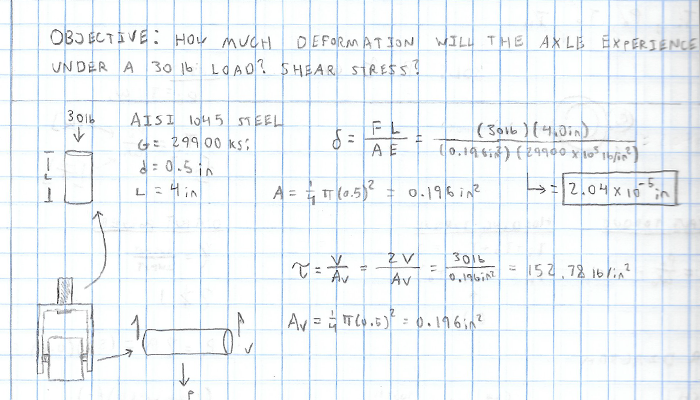 OBJECTIVE: HOW MUCH DEFORMATION WILL THE AXLE EXPERIENCE
UNDER A 30 lb LOAD? SHEAR STRESS?
30lb
AISI 1045 STEEL
G = 29900 ksi
d = 0.5 in
L = 4 in
L
δ = FL/AE = (30lb)(4.0in)/(0.196in²)(29900 ×10³ lb/in²)
→ = 2.04 × 10⁻⁵ in
A = ¼ π(0.5)² = 0.196 in²
τ = V/Av = 2V/Av = 30lb/0.196in² = 152.78 lb/in²
Av = ¼ π(0.5)² = 0.196in²
V
P